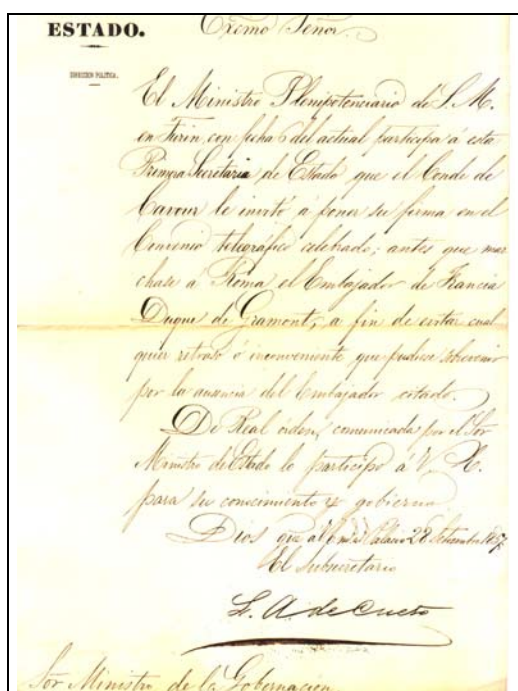 ESTADO.
Excmo Señor.
DIRECCION POLITICA.
El Ministro Plenipotenciario de S. M.
en Turin, con fecha 6 del actual participa á esta
Primera Secretaría de Estado que el Conde de
Cavour le invitó á poner su firma en el
Convenio telegráfico celebrado; antes que mar
chase a Roma el Embajador de Francia
Duque de Gramont, a fin de evitar cual
quier retraso ó inconveniente que pudiese sobrevenir
por la ausencia del Embajador citado.
De Real órden, comunicada por el Sor
Ministro de Estado lo participo á V. E.
para su conocimiento y gobierno.
Dios gue a V. E. m. a. Palacio 28 Setiembre 1857
El Subsecretario
L. A. de Cueto
Sor Ministro de la Gobernacion